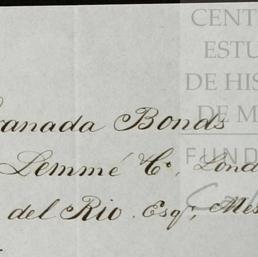 CENT
ESTU
DE HIS
DE M
FUND
ranada Bonds
Lemmé Co, Lond
del Rio. Esqr, Mes